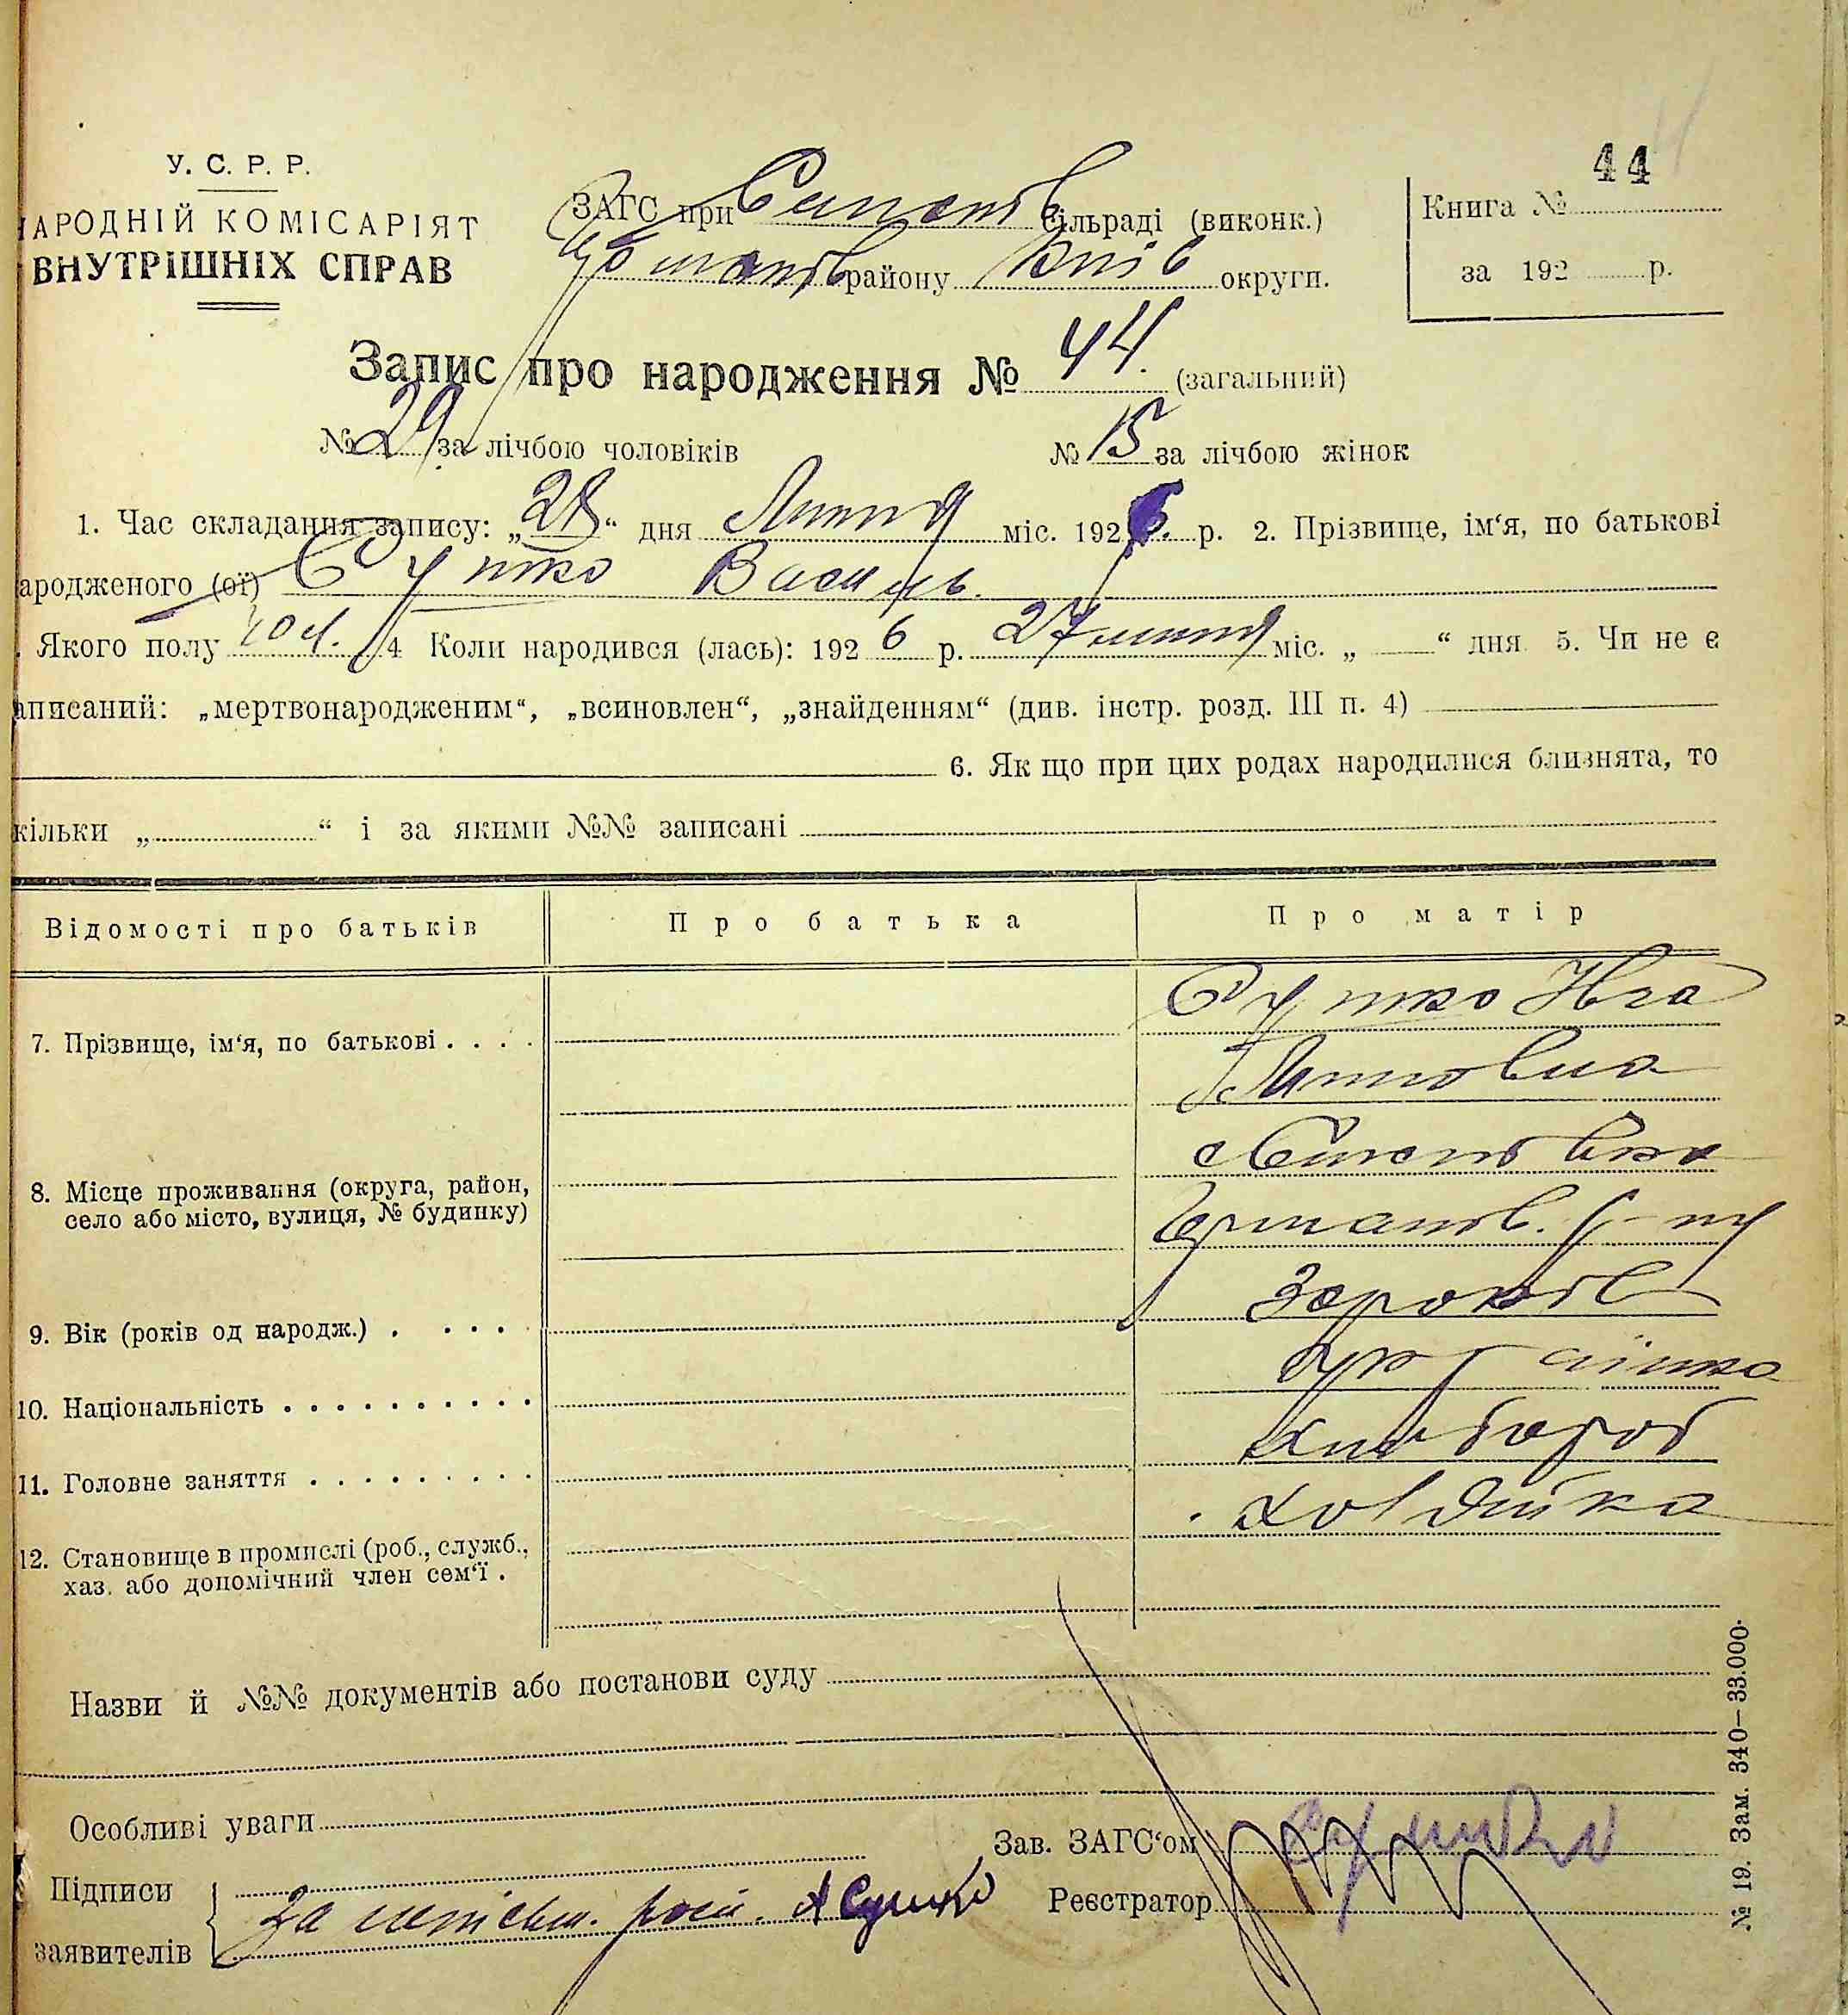 44
У. С. Р. Р.
НАРОДНІЙ КОМІСАРІЯТ
ВНУТРІШНІХ СПРАВ
ЗАГС при сільраді (виконк.)
району Київ округи.
Книга №
за 192 р.
Запис про народження № 44. (загальний)
№ 29 за лічбою чоловіків № 15 за лічбою жінок
1. Час складання запису: „28“ дня Липня міс. 1926. р. 2. Прізвище, ім‘я, по батькові
ародженого (ої) Сушко Василь.
. Якого полу чол. 4 Коли народився (лась): 1926 р. 27 липня міс. „ “ дня 5. Чи не є
аписаний: „мертвонародженим“, „всиновлен“, „знайденням“ (див. інстр. розд. III п. 4)
6. Як що при цих родах народилися близнята, то
кільки „ “ і за якими №№ записані
Відомості про батьків Про батька Про матір
7. Прізвище, ім‘я, по батькові . . . . Сушко
8. Місце проживання (округа, район,
село або місто, вулиця, № будинку)
9. Вік (років од народж.) . . . . .
10. Національність . . . . . . . . . . українка
11. Головне заняття . . . . . . . . . хлібороб
12. Становище в промислі (роб., служб.,
хаз. або допомічний член сем‘ї . хазяйка
Назви й №№ документів або постанови суду
Особливі уваги
Зав. ЗАГС‘ом
Підписи
заявителів
За неписьм. А Сушко
Реєстратор
№ 19. Зам. 340—33.000.